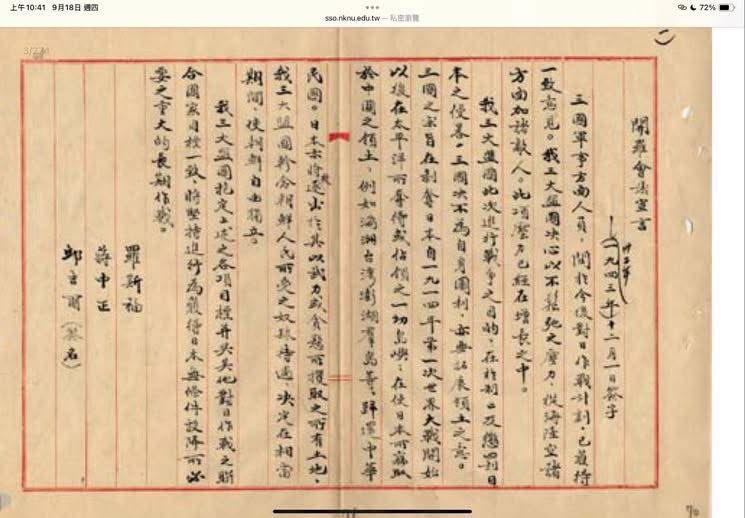 上午10:41 9月18日 週四
72%
sso.nknu.edu.tw — 私密瀏覽
開羅會議宣言
卅二年
(一九四三年)十二月一日簽字
三國軍事方面人員,關於今後對日作戰計劃,已獲得
一致意見。我三大盟國决心以不鬆弛之壓力,從海陸空諸
方面加諸敵人。此項壓力已經在增長之中。
我三大盟國此次進行戰爭之目的,在於制止及懲罰日
本之侵略。三國决不為自身圖利,亦無拓展領土之意。
三國之宗旨在剝奪日本自一九一四年第一次世界大戰開始
以後在太平洋所奪得或佔領之一切島嶼,在使日本所竊取
於中國之領土,例如滿洲台灣澎湖羣島等,歸還中華
民國。日本亦將被逐出於其以武力或貪慾所攫取之所有土地,
我三大盟國軫念朝鮮人民所受之奴隸待遇,决定在相當
期間,使朝鮮自由獨立。
我三大盟國抱定上述之各項目標並與其他對日作戰之聯
合國家目標一致,將堅持進行為獲得日本無條件投降所必
要之重大的長期作戰。
羅斯福
蔣中正
邱吉爾(簽名)
70